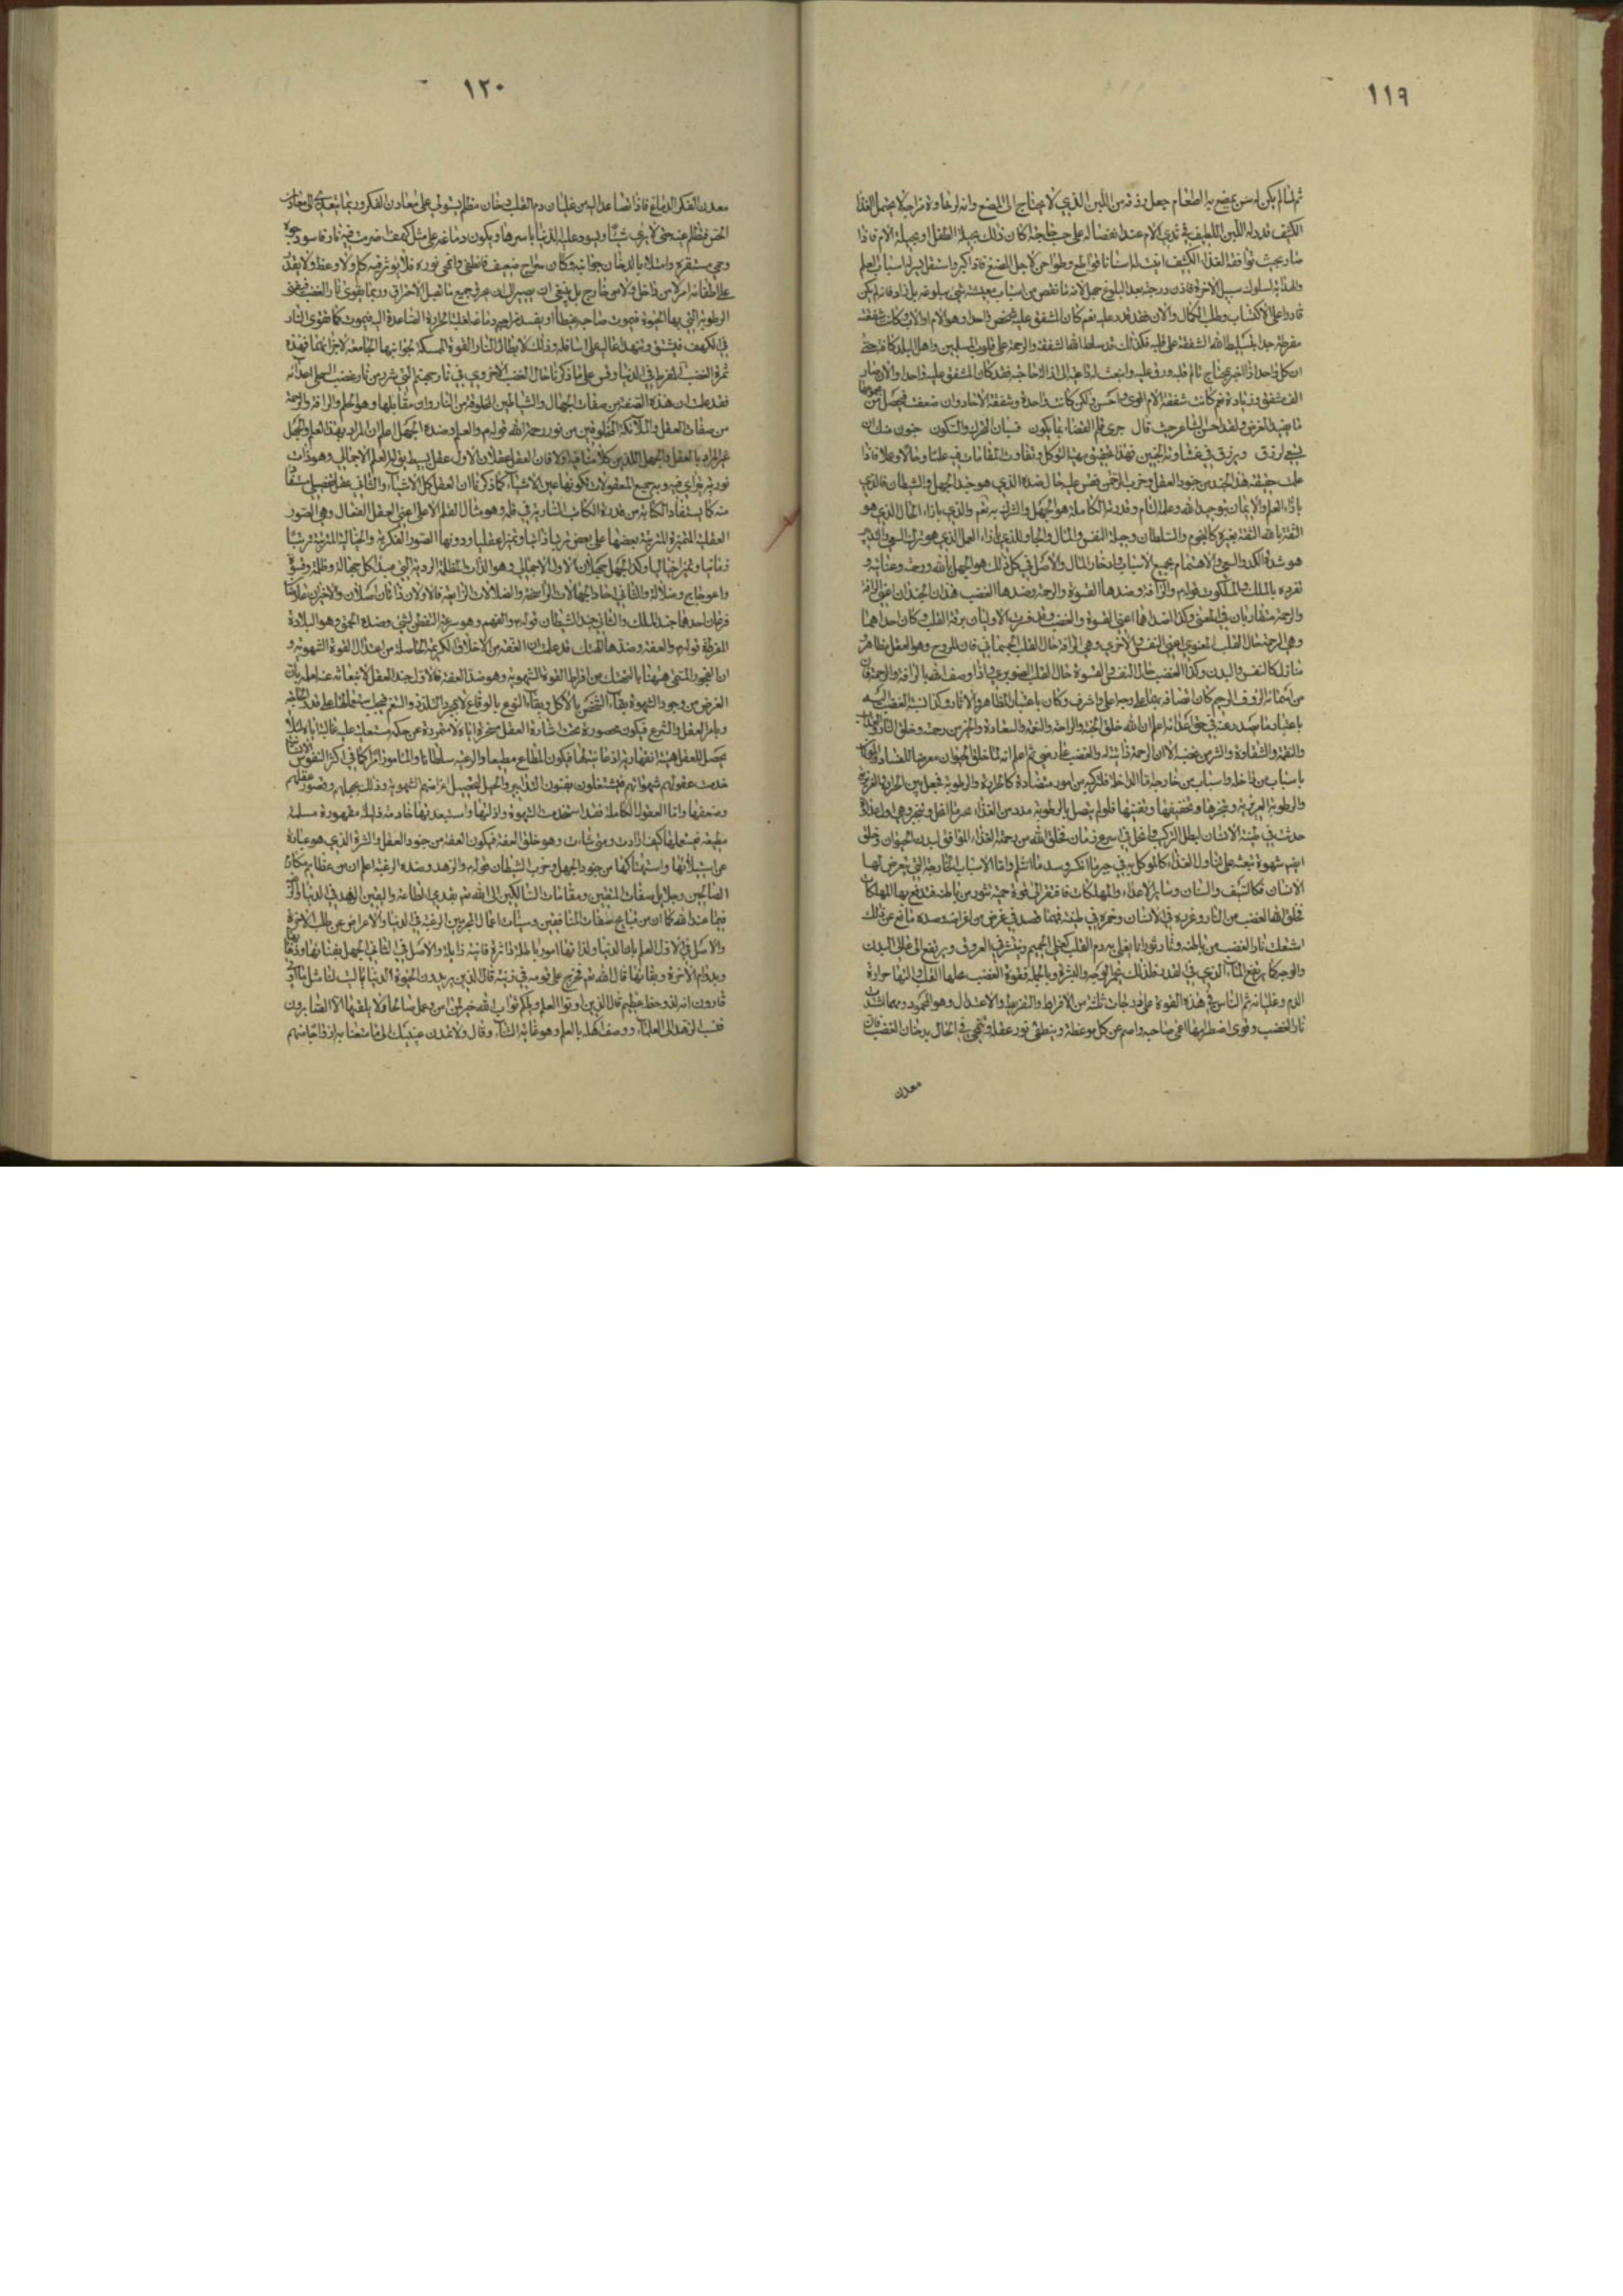 ١١٩
ثم لما لم يكن له سن يمضغ به الطعام جعل رزقه من اللبن الذي لا يحتاج الى المضغ وانه لرخاوة مزاجه لا يحتمل الغذاء
الكثيف فدر له اللبن اللطيف في ثدي الام عند انفصاله على حسب حاجته اكان ذلك بحيلة الطفل او بحيلة الام فاذا
صار بحيث توافقه الغذاء الكثيف انبت له اسنانا قواطع وطواحن لاجل المضغ فاذا كبر واستقل يسر له اسباب العلم
والهداية لسلوك سبيل الاخرة
قادرا على الاكتساب وطلب الكمال والان فقد قدر عليه نعم كان المشفق عليه شخص واحد وهو الام او الاب وكانت شفقته
مفرطة جدا بتسليط الله الشفقة على قلبه فكذلك قد سلط الله الشفقة والرحمة على قلوب المسلمين واهل البلد كافة حتى
ان كل واحد اذا
الف مشفق وزيادة نعم كانت شفقة الام اقوى واحسن ولكن كانت واحدة وشفقة الاحاد وان ضعفت فيحصل من مجموعها
ما يفيد الغرض ولقد احسن الشاعر حيث قال جرى قلم القضاء بما يكون فسيان التحرك والسكون جنون منك ان
تسعى لرزق ويرزق في غشاوته الجنين فهذا تحقيق مهية التوكل وتفاوت المقامات فيه علما وحالا وعملا فاذا
علمت حقيقة هذا الجند من جنود العقل وحزب الرحمن فقس عليه حال ضده الذي هو جند الجهل والشيطان فالذي
بازاء العلم والايمان بتوحيد الله وعلمه التام وقدرته الكاملة هو الجهل والشرك به تعالى والذي بازاء الحال الذي هو
الثقة بالله الثقة بغيره كالنجوم والسلطان وحيلة النفس والمال والجاه والذي بازاء العمل الذي هو ترك السعي والتدبير
هو شدة الكد والسعي والاهتمام بجميع الاسباب وادخار المال والاصل في كل ذلك هو الجهل بالله ورحمته وعنايته و
تفرده بالملك والملكوت قوله والرأفة وضدها القسوة والرحمة وضدها الغضب هذان الجندان اعني الرأفة
والرحمة متقاربان في المعنى وكذا ضداهما اعني القسوة والغضب
وهي الرحمة حال القلب المعنوي اعني النفس والاخرى وهي الرأفة حال القلب الجسماني
من اسمائه الرؤف الرحيم كان اتصافه بهما على وجه اعلى واشرف وكان باعتبار المظاهر والاثار وكذا نسبة الغضب اليه
باعتبار ما يصدر عنه في حق اعدائه اعلم ان الله خلق الجنة والراحة والنعمة والسعادة والخير من رحمته وخلق النار والعذاب
والنقمة والشقاوة والشر من غضبه الا ان الرحمة ذاتية له والغضب عارضي ثم اعلم انه لما خلق الحيوان معرضا للفساد والموتان
باسباب من داخله واسباب من خارجه اما الداخلة فلتركبه من امور متضادة كالحرارة والرطوبة فجعل بين الحرارة الغريزية
والرطوبة الغريزية
حدثت في طينة الانسان
ايضا شهوة تبعثه على تناول الغذاء كالموكل به في جبر ما انكسر وسد ما انثلم واما الاسباب الخارجة التي يتعرض لها
الانسان فكالسيف والسنان وساير الاعداء والمهلكات فافتقر الى قوة حمية تثور من باطنه فتدفع بها المهلكات
فخلق الله الغضب من النار وغرزه في الانسان وخمره في طينته فمهما قصد في غرض من اغراضه وصده مانع عن ذلك
اشتعلت نار الغضب من باطنه وثارت ثورانا يغلي به دم القلب كغلي الحميم وينتشر في العروق ويرتفع الى اعالي البدن
والوجه كما يرتفع الماء الذي في القدر فلذلك يحمر الوجه والبشرة وبالجملة فقوة الغضب محلها القلب والنها حرارة
الدم وغليانه ثم الناس في هذه القوة على درجات ثلثة من الافراط والتفريط والاعتدال وهو المحمود ومهما اشتدت
نار الغضب وقوى اضطرامها اعمى صاحبه واصم عن كل موعظة وينطفي نور عقله وينمحي في الحال بدخان الغضب فان
معدن
١٢٠
معدن الفكر الدماغ فاذا تصاعد اليه من غليان دم القلب دخان مظلم يستولي على معادن الفكر وربما يتعدى الى معادن
الحس فيظلم عينه حتى لا يرى شيئا ويسود عليه الدنيا باسرها ويكون دماغه على مثل كهف اضرمت فيه نار فاسود جوه
وحمي مستقره وامتلأ بالدخان جوانبه وكان سراج ضعيف فانطفى وانمحى نوره فلا يؤثر فيه كلام ولا وعظ ولا يقدر
على اطفائه امر لا من داخل ولا من خارج بل ينبغي ان يصبر الى ان يحرق جميع ما يقبل الاحتراق وربما يقوى نار الغضب فيفنى
الرطوبة التي بها الحيوة فيموت صاحبه غيظا او يفسد مزاج دماغه لغلبة الحرارة الصاعدة اليه فيموت كما تقوى النار
في الكهف فيتشقق وتنهد اعاليه على اسافله وذلك لابطال النار القوة الممسكة بجوانبها الجامعة لاجزائها فهذه
ثمرة الغضب المفرط في الدنيا وقس على ما ذكرنا حال الغضب الاخروي في نار جحيم
فقد علمت ان هذه الصفة من صفات الجهال والشياطين المخلوقة من النار وان مقابلها وهو الحلم والرافة والرحمة
من صفات العقل والملائكة المخلوقين من نور رحمة الله قوله والعلم وضده الجهل اعلم ان المراد بهذا العلم والجهل
غير المراد بالعقل والجهل اللذين كلامنا فيه اولا فان العقل عقلان الاول عقل بسيط يقال له العلم الاجمالي وهو ذات
نورية يتراى فيه وبه جميع المعقولات لكونها عين الاشياء كما ذكرنا ان العقل كل الاشياء والثاني عقل تفصيلي مستفاد
منه كما يستفاد الكتابة من قدرة الكاتب السارية في قلمه وهو مثال القلم الاعلى اعني العقل الفعال وهي الصور
العقلية المتميزة المترتبة بعضها على بعض ترتبا ذاتيا وتميزا عقليا ودونها الصور الفكرية والخيالية المترتبة ترتبا
زمانيا وتميزا خياليا وكذا الجهل جهلان الاول الاجمالي وهو الذات المظلمة الردية التي مبدأ كل جهالة وظلمة وقسوة
واعوجاج وضلالة والثاني احاد الجهالات الراسخة والضلالات الزايغة فالاولان ذاتان اصلان والاخران صفتان
فرعان احدهما جند الملك والثاني جند الشيطان قوله والفهم وهو سرعة التفطن لشيء وضده الحمق وهو البلادة
المفرطة قوله والعفة وضدها التهتك قد علمت ان العفة من الاخلاق الكريمة الحاصلة من اعتدال القوة الشهوية و
ان الفجور المسمى ههنا بالتهتك من افراط القوة الشهوية وهو ضد العفة فالاول جند العقل لانبعاثه عنه لعلمه بان
الغرض من وجود الشهوة بقاء الشخص بالاكل وبقاء النوع بالوقاع لا مجرد التلذذ والتنعم فيجب استعمالها على قدر الحاجة
وبامر العقل والشرع فيكون محصورة تحت اشارة العقل مسخرة اياه لا متمردة عن حكمه مستعلية عليه غالبة اياه لئلا
يحصل للعقل هيئة انقهارية
خدمت عقولهم شهواتهم فيشتغلون بفنون التدابير والحيل لتحصيل اغراضهم الشهوية وذلك بجهلهم وقصور عقلهم
وضعفها واما العقول الكاملة فقد استخدمت الشهوة واذلتها واستعبدتها خادمة ذليلة مقهورة مسلمة
مطيعة تستعملها كيف ارادت ومتى شاءت وهو خلق العفة فيكون العفة من جنود العقل والشره الذي هو عبارة
عن استيلائها واستهتاكها من جنود الجهل وحزب الشيطان قوله والزهد وضده الرغبة اعلم ان من عظايم مكارم
الصالحين وجلايل صفات المتقين ومقامات السالكين الى الله تعالى بقدمي الطاعة واليقين الزهد في الدنيا
فيما عند الله كما ان من قبايح صفات المنافقين وسيئات اعمال المجرمين الرغبة في الدنيا والاعراض عن طلب الاخرة
والاصل في الاول العلم بان الدنيا ولذاتها امور باطلة داثرة فانية زايلة والاصل في الثاني الجهل بفنائها
وبدوام الاخرة وبقائها قال الله تعالى فخرج على قومه في زينته قال الذين يريدون الحيوة الدنيا يا ليت لنا مثل ما اوتي
قارون انه لذو حظ عظيم قال الذين اوتوا العلم ويلكم ثواب الله خير لمن امن وعمل صالحا ولا يلقيها الا الصابرون
فنسب الزهد الى العلماء ووصف اهله بالعلم وهو غاية الثناء وقال ولا تمدن عينيك الى ما متعنا به ازواجا منهم